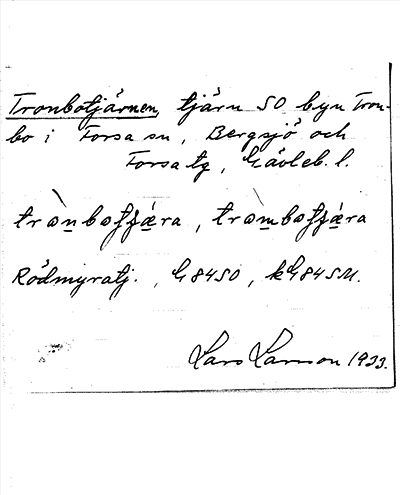 Tronbotjärnen, tjärn SO byn Tron-
bo i Forsa sn, Bergsjö och
Forsa tg, Gävleb. l.
tròn̲botjæ̲ra, tròm̲botjæ̲ra
Rödmyratj., G84SO, kG84SM.
Lars Larsson 1933.